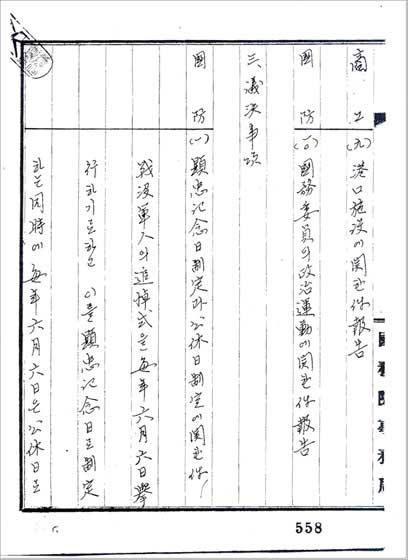 商工 (九) 港口施設에 関한 件 報告
国防 (一〇) 國務委員의 政治運動에 関한 件 報告
三、議決事項
国防 (一) 顯忠記念日 制定과 公休日 制定에 関한 件
戦没軍人의 追悼式을 每年 六月 六日 擧
行하기로 하고 이를 顯忠記念日로 制定
하는 同時에 每年 六月 六日은 公休日로
558